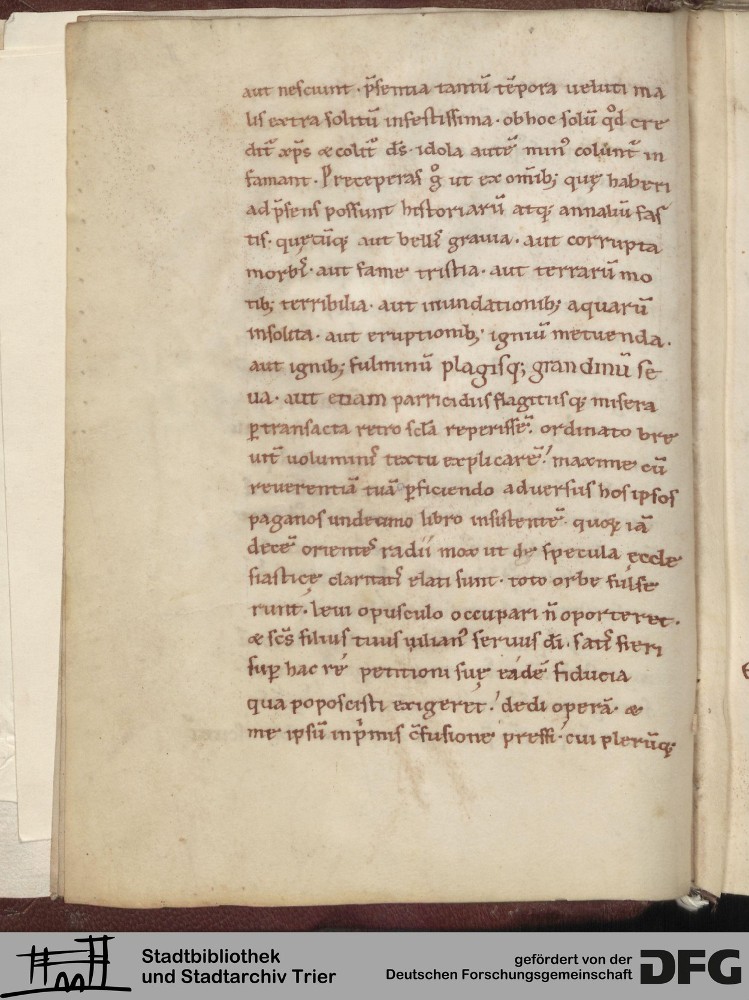 aut nesciunt · p̄sentia tantū tēpora ueluti ma
lis extra solitū infestissima · ob hoc solū qd̄ cre
dit̄ xp̄s & colit̄ · ds̄ · idola autē min᷒ colunt̄ in
famant · Preceperas g̊ ut ex om̄ib; quę haberi
ad p̄sens possunt historiarū atq; annaliū fas
tis · quęcūq; aut bellis grauia · aut corrupta
morbis · aut fame tristia · aut terrarū mo
tib; terribilia · aut inundationib; aquarū
insolita · aut eruptionib; igniū metuenda ·
aut ignib; fulminū plagisq; grandinū se
ua · aut etiam parricidiis flagitiisq; misera
ꝑ transacta retro scl̄a reperissē · ordinato bre
uit̄ uoluminis textu explicarē · maxime cū
reuerentiā tuā ꝑficiendo aduersus hos ipsos
paganos undecimo libro insistentē · quoꝝ iā
decē orientes radii mox ut de specula eccle
siasticę claritatis elati sunt · toto orbe fulse
runt · leui opusculo occupari n̄ oporteret ·
& sc̄s filius tuus iulian᷒ seruus dī · satis fieri
sup hac re petitioni suę eadē fiducia
qua poposcisti exigeret · dedi operā · &
me ipsū inp̄mis c̄fusione pressi · cui plerūq;
Stadtbibliothek
und Stadtarchiv Trier
gefördert von der
Deutschen Forschungsgemeinschaft
DFG